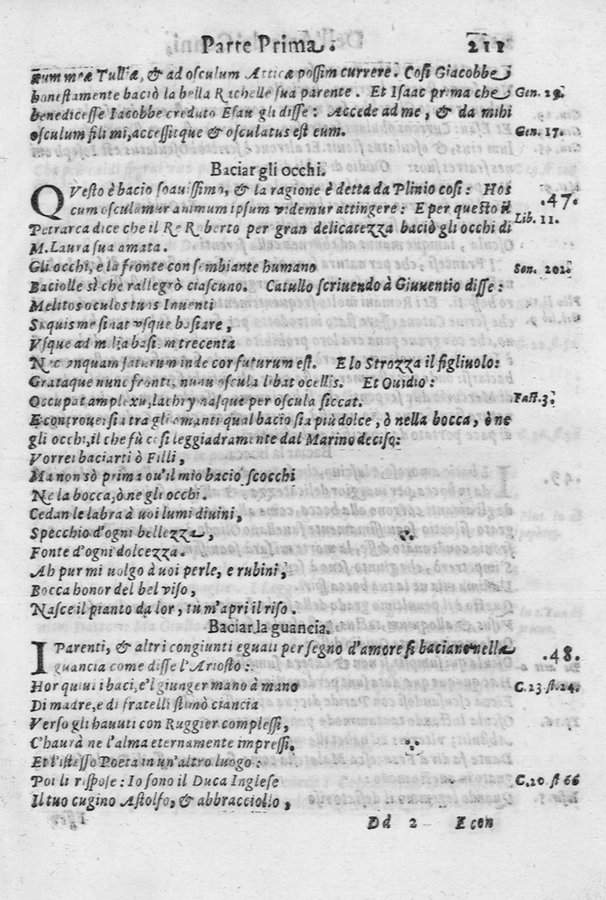 Parte Prima. 211
meæ Tulliæ, & ad osculum Atticæ possim currere. Così Giacobbe
honestamente baciò la bella Rachelle sua parente. Et Isaac prima che Gen. 29.
benedicesse Iacobbe creduto Esau gli disse: Accede ad me, & da mihi
osculum fili mi, accessitque & osculatus est eum. Gen. 17.
Baciar gli occhi.
QVesto è bacio soauissimo, & la ragione è detta da Plinio cosi: Hos .47.
cum osculamur animum ipsum videmur attingere: E per questo il Lib. 11.
Petrarca dice che il Re Roberto per gran delicatezza baciò gli occhi di
M. Laura sua amata.
Gli occhi, e la fronte con sembiante humano Son. 201.
Baciolle sì che rallegrò ciascuno. Catullo scriuendo à Giuuentio disse:
Mellitos oculos tuos Iuuenti
Si quis me sinat vsque basiare,
Vsque ad millia basiem trecenta
Nec unquam saturum inde cor futurum est. E lo Strozza il figliuolo:
Grataque nunc fronti, nunc oscula libat ocellis. Et Ouidio:
Occupat amplexu, lachrymasque per oscula siccat. Fast. 3.
E controuersia tra gli amanti qual bacio sia più dolce, ò nella bocca, ò ne
gli occhi, il che fù così leggiadramente dal Marino deciso:
Vorrei baciarti ò Filli,
Ma non sò prima ou'il mio bacio scocchi
Ne la bocca, ò ne gli occhi.
Cedan le labra à uoi lumi diuini,
Specchio d'ogni bellezza,
Fonte d'ogni dolcezza.
Ah pur mi uolgo à uoi perle, e rubini,
Bocca honor del bel viso,
Nasce il pianto da lor, tu m'apri il riso.
Baciar la guancia.
I Parenti, & altri congiunti eguali per segno d'amore si bacianonella .48.
guancia come disse l'Ariosto:
Hor quiui i baci, e'l giunger mano à mano C. 23. st. 24.
Di madre, e di fratelli stimò ciancia
Verso gli hauuti con Ruggier complessi,
C'haurà ne l'alma eternamente impressi.
Et l'istesso Poeta in un'altro luogo:
Poi li rispose: Io sono il Duca Inglese C. 20. st 66
Il tuo cugino Astolfo, & abbracciollo,
Dd 2 E con